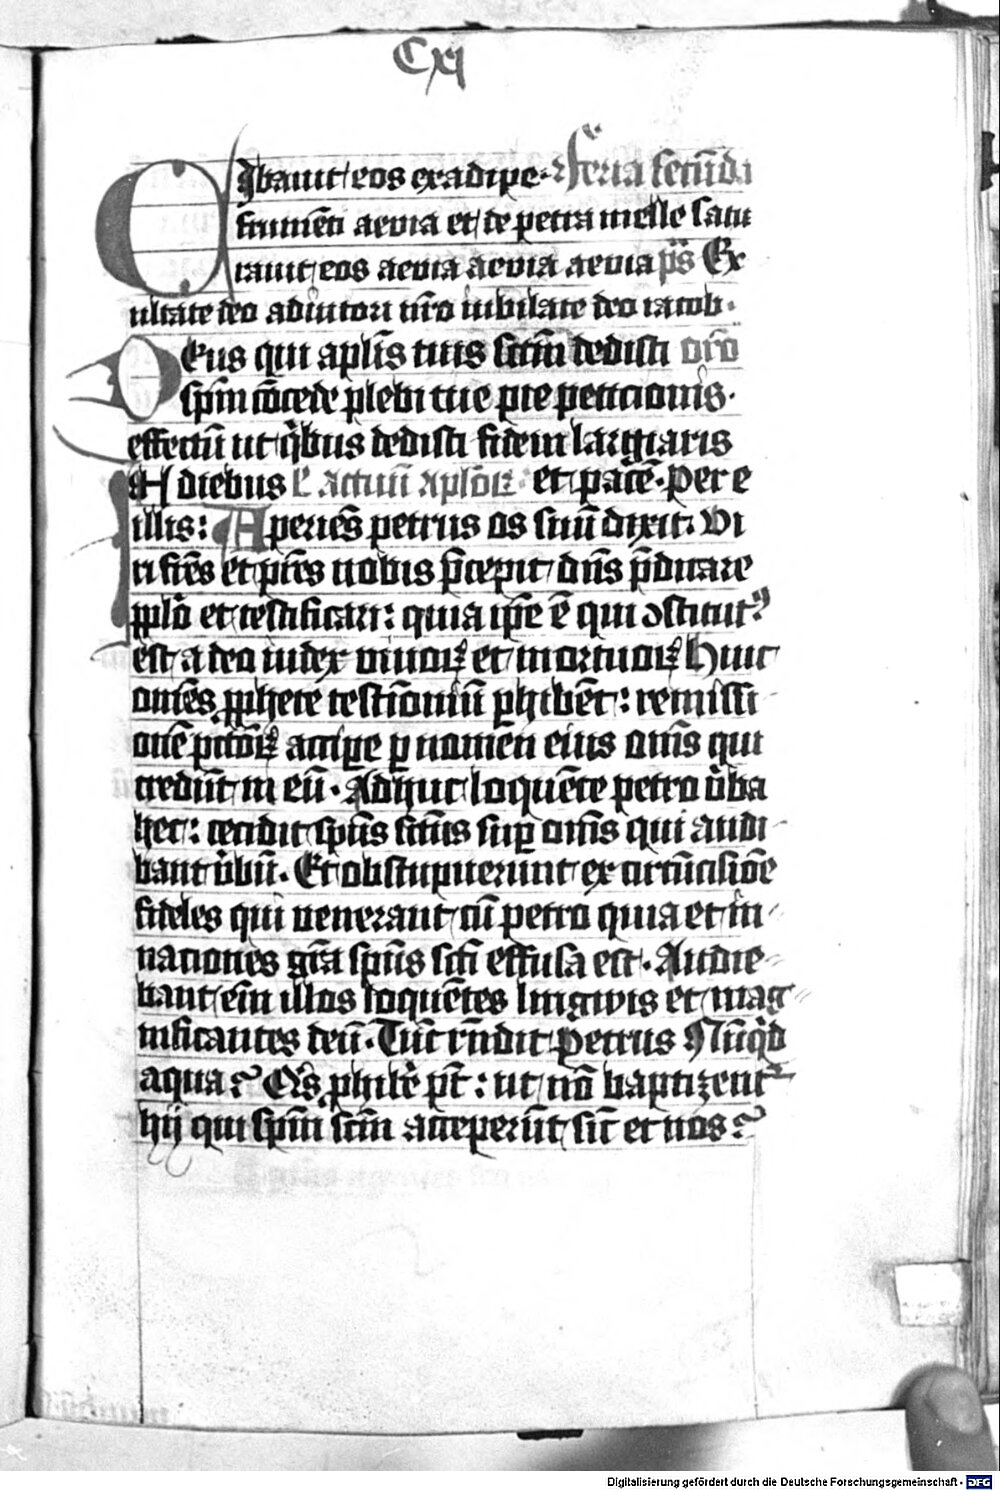 Cxi
Cibauit eos ex adipe · Feria secūda
frumēti aeuia et de petra melle satu
rauit eos aeuia aeuia aeuia p̄s Ex
ultate deo adiutori nr̄o iubilate deo iacob ·
Deus qui aplīs tuis sctm̄ dedisti or̄o
spm̄ cōcede plebi tue pie peticionis ·
effectū ut q̇bus dedisti fidem largiaris
In diebus l̄ actuū aplōꝝ et pacē · Per e
illis : Aperiēs petrus os suū dixit : Vi
ri fr̄es et pr̄es nobis p̄cepit dn̄s p̄dicare
pplō et testificari : quia ip̄e ē qui ɔstitut᷒
est a deo iudex viuoꝝ et mortuoꝝ Huic
om̄es ꝓphete testīoniū ꝑhibēt : remissi
onē pctōꝝ accipe ꝑ nomen eius om̄s qui
credūt in eū · Adhuc loquēte petro v̇ba
hec : cecidit spūs sctūs suꝑ om̄s qui audi
bant v̇bū · Et obstupuerunt ex circūcisiōe
fideles qui venerant cū petro quia et in
nationes gr̄a spūs scī effusa est · Audie
bant em̄ illos loquētes lingwis et mag
nificantes deū · Tūc rn̄dit Petrus Nūq̇d
aqua Q̇s ꝓhibe᷒ pt̄ : ut nō baptizent᷒
hij qui spm̄ sctm̄ acceperūt sic̄ et nos ?
Digitalisierung gefördert durch die Deutsche Forschungsgemeinschaft - DFG